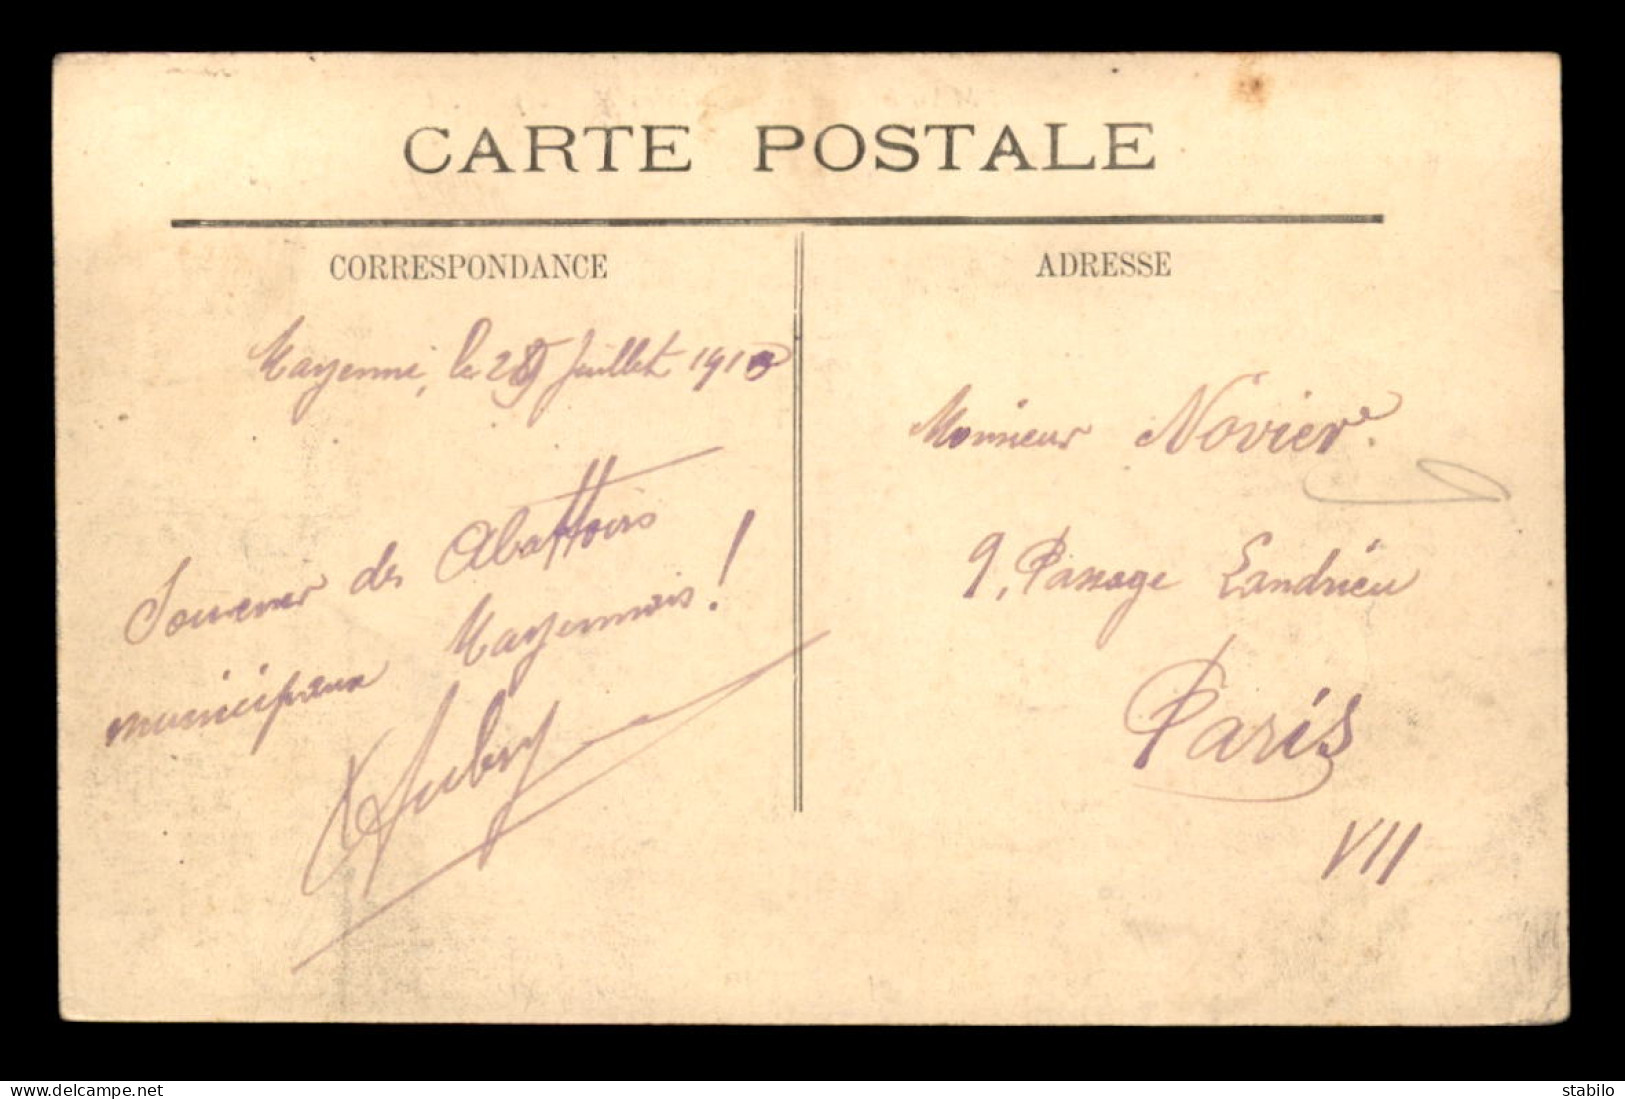 CARTE POSTALE
CORRESPONDANCE
Mayenne, le 28 Juillet 1913
Souvenir des Abattoirs
municipaux Mayennais !
Aubry
ADRESSE
Monsieur Novier.
9, Passage Landrieu
Paris
VII
www.delcampe.net
stabilo